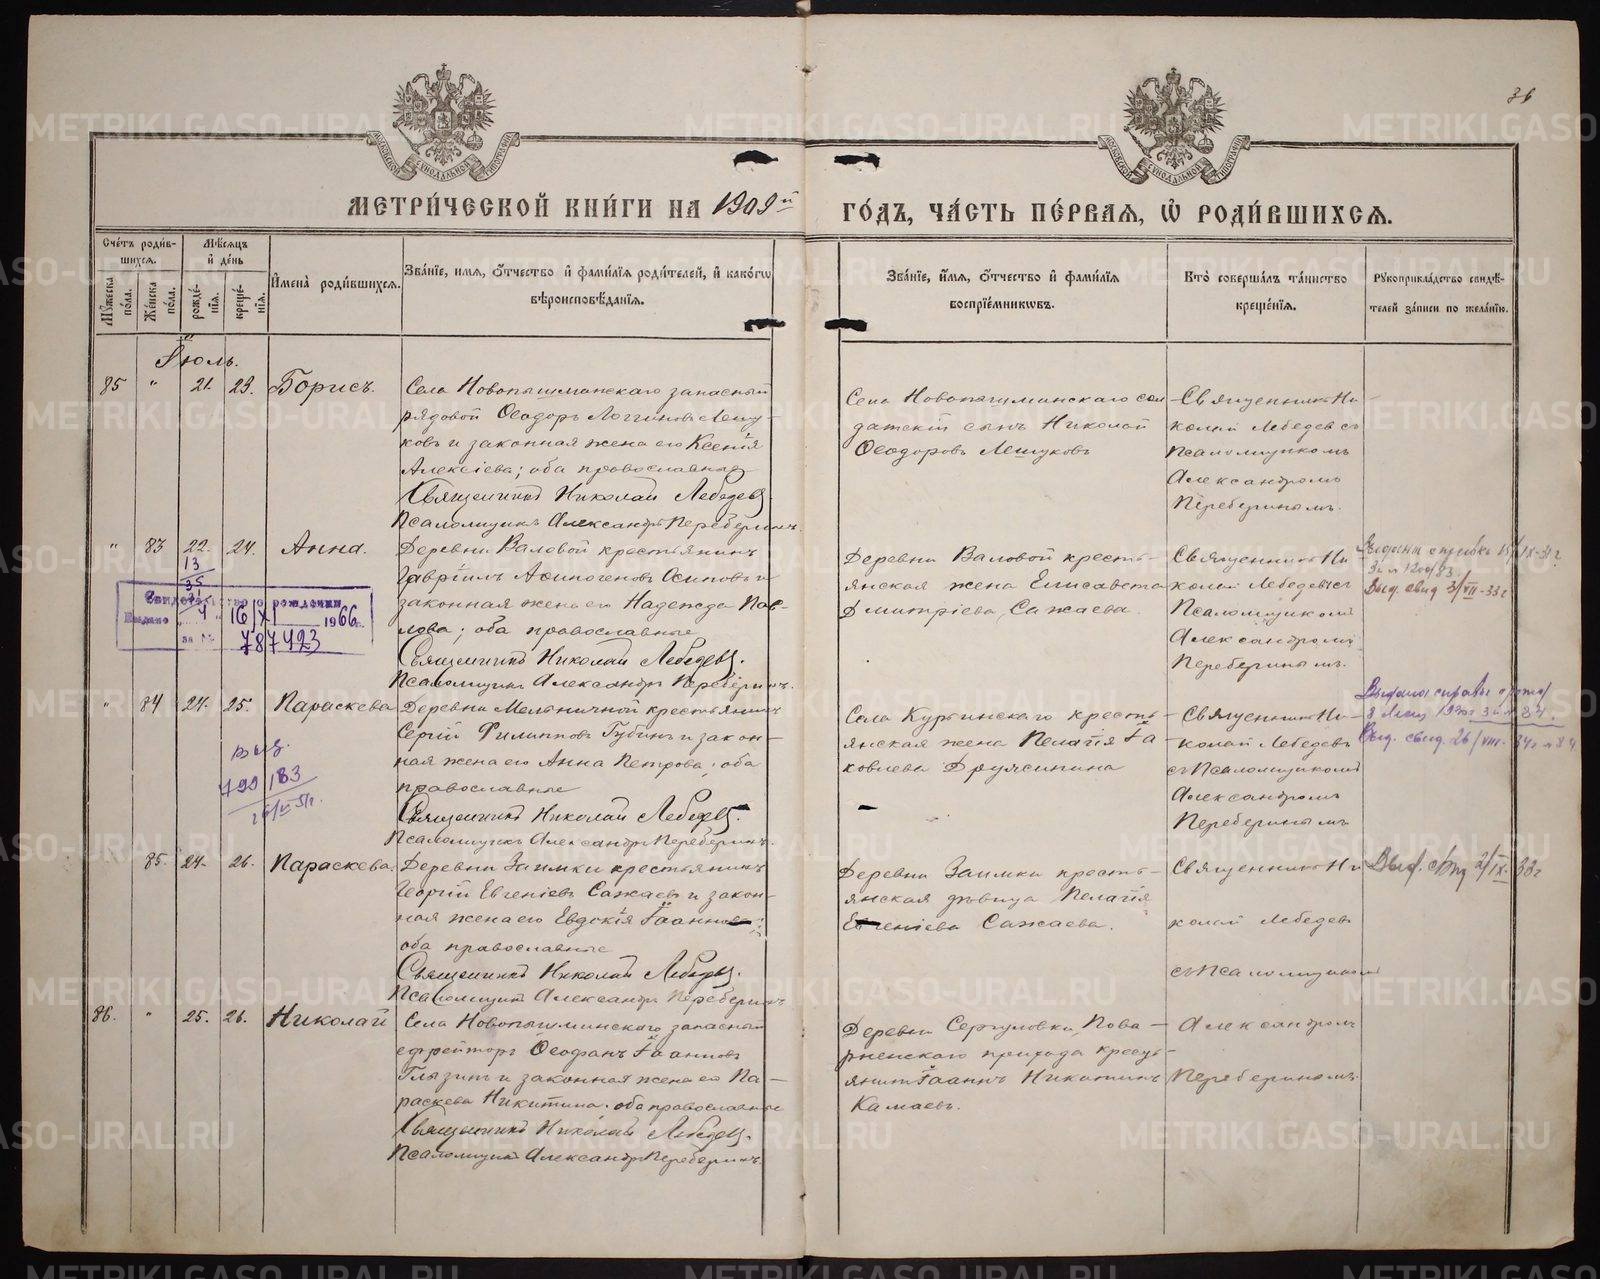 36
МЕТРИЧЕСКОЙ КНИГИ НА 1909й ГОДЪ, ЧАСТЬ ПЕРВАЯ, Ѡ РОДИВШИХСЯ.
Счетъ родив-
шихся.
Мѣсяцъ
и день
Мужеска
пола.
Женска
пола.
рожде-
нія.
креще-
нія.
Имена родившихся.
Званіе, имя, отчество и фамилія родителей, и какогѡ
вѣроисповѣданія.
Званіе, имя, отчество и фамилія
воспріемникѡвъ.
Кто совершалъ таинство
крещенія.
Рукоприкладство свидѣ-
телей записи по желанію.
Іюль.
85 " 21. 23. Борисъ.
Села Новопышминскаго запасный
рядовой Ѳеодоръ Логгиновъ Лешу-
ковъ и законная жена его Ксенія
Алексіева; оба православные
Священникъ Николай Лебедевъ.
Псаломщикъ Александръ Переберинъ.
Села Новопышминскаго сол
датскій сынъ Николай
Ѳеодоровъ Лешуковъ
Священникъ Ни-
колай Лебедев съ
Псаломщикомъ
Александромъ
Переберинымъ.
" 83 22. 24. Анна.
13
35
Свидетельство о рождении
Выдано 16/XI 1966 г.
за № 787423
Деревни Валовой крестьянинъ
Гавріилъ Аѳиногеновъ Осиповъ и
законная жена его Надежда Пав-
лова; оба православные
Священникъ Николай Лебедевъ.
Псаломщикъ Александръ Переберинъ.
Деревни Валовой кресть-
янская жена Елисавета
Дмитріева Сажаева.
Священникъ Ни-
колай Лебедевъ съ
Псаломщикомъ
Александромъ
Переберинымъ.
Выд. свид. 3/VII-33 г
" 84 24. 25. Параскева
выд.
799183
Деревни Мельничной крестьянинъ
Сергій Филипповъ Губинъ и закон-
ная жена его Анна Петрова; оба
православные
Священникъ Николай Лебедевъ.
Псаломщикъ Александръ Переберинъ.
Села Курьинскаго кресть-
янская жена Пелагія Іа
ковлева Дружинина
Священникъ Ни-
колай Лебедевъ
съ Псаломщикомъ
Александромъ
Переберинымъ
Выд. свид. 26/VIII-34 г № 84
85. 24. 26. Параскева.
Деревни Заимки крестьянинъ
Георгій Евгеніевъ Сажаевъ и закон-
ная жена его Евдокія Іоаннова;
оба православные
Священникъ Николай Лебедевъ.
Псаломщикъ Александръ Переберинъ
Деревни Заимки кресть-
янская дѣвица Пелагія
Евгеніева Сажаева.
Священникъ Ни
колай Лебедевъ
съ Псаломщикомъ
Выд. свид 2/IX-33 г
86. " 25. 26. Николай
Села Новопышминскаго запасный
ефрейторъ Ѳеофанъ Іоанновъ
Глызинъ и законная жена его Па-
раскева Никитина. оба православные
Священникъ Николай Лебедевъ.
Псаломщикъ Александръ Переберинъ.
Деревни Сергуловки, Пова-
рненскаго прихода кресть-
янинъ Іоаннъ Никитинъ
Камаевъ.
Александромъ
Переберинымъ.
METRIKI.GASO-URAL.RU